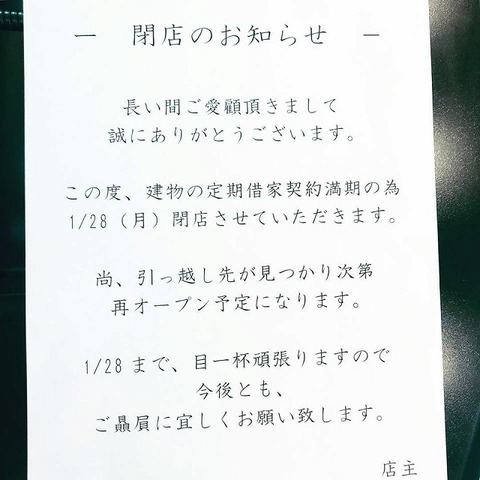 ― 閉店のお知らせ ―
長い間ご愛顧頂きまして
誠にありがとうございます。
この度、建物の定期借家契約満期の為
1/28（月）閉店させていただきます。
尚、引っ越し先が見つかり次第
再オープン予定になります。
1/28まで、目一杯頑張りますので
今後とも、
ご贔屓に宜しくお願い致します。
店主